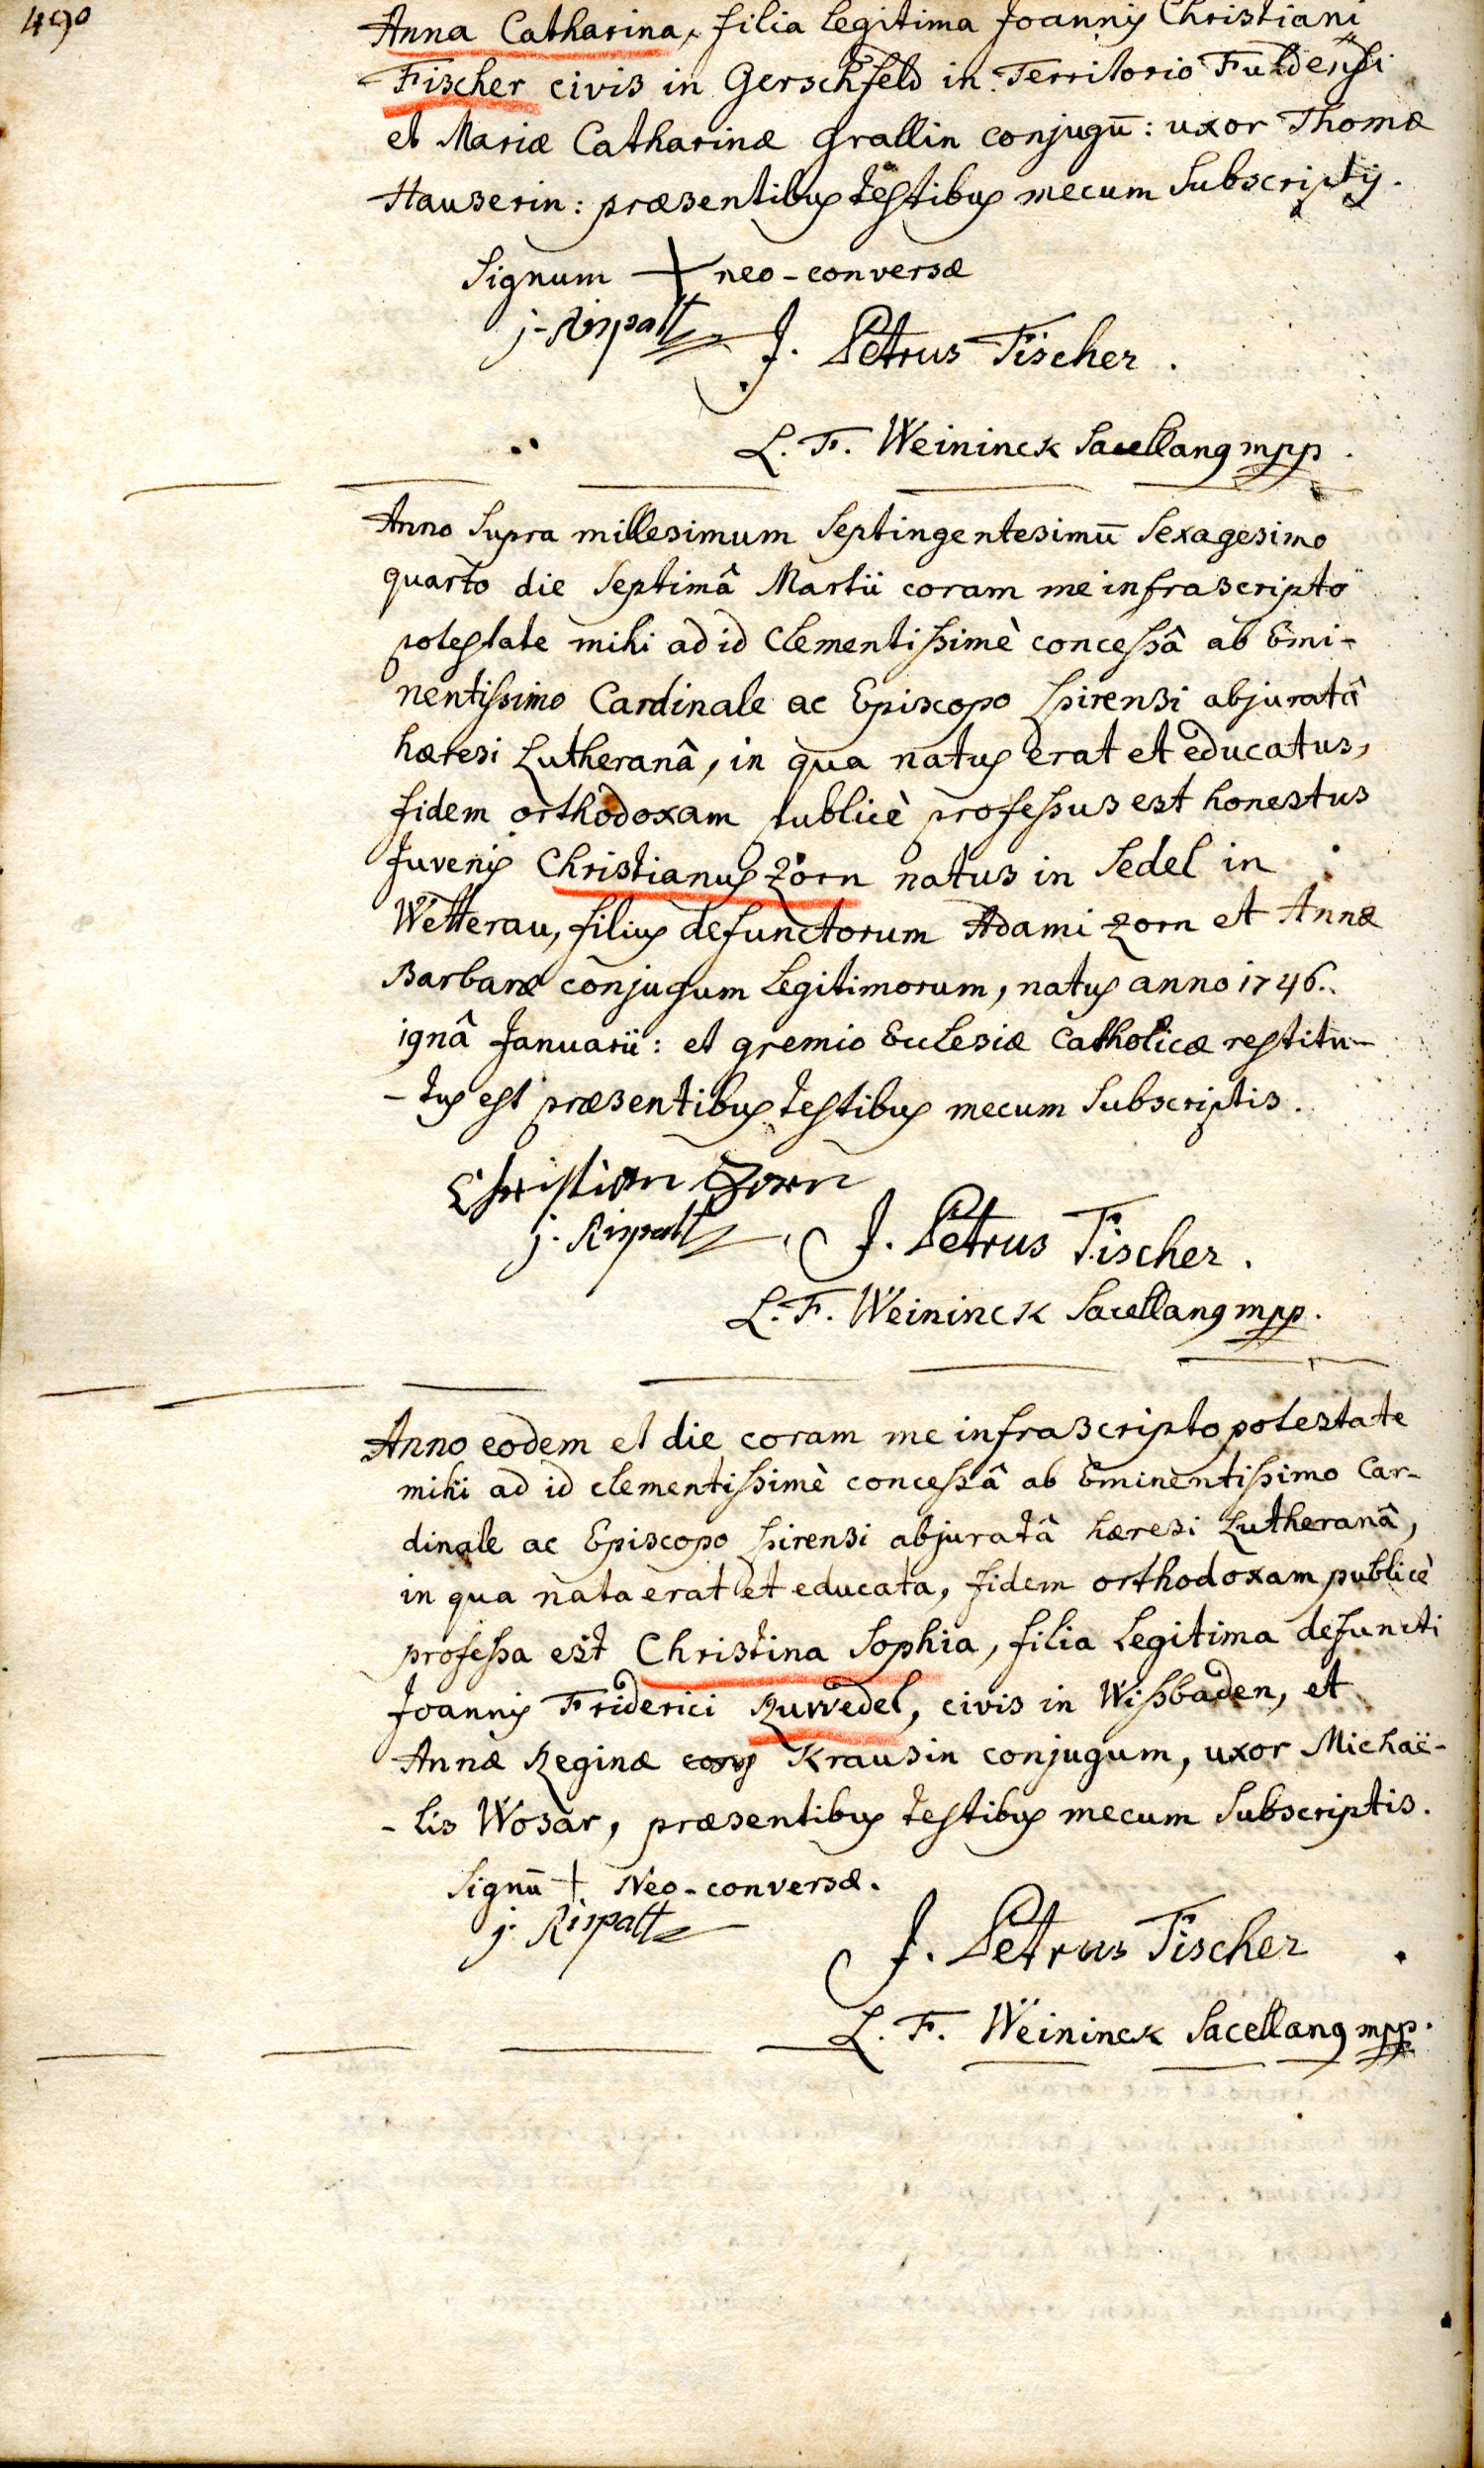 490
Anna Catharina, filia legitima Joannis Christiani
Fischer civis in Gerschfeld in Territorio Fuldensi
et Mariæ Catharinæ Grallin conjugū: uxor Thomæ
Hauserin: præsentibus testibus mecum subscriptis.
Signum + neo-conversæ
j. Rispalt J. Petrus Fischer.
L. F. Weininck Sacellanus mpp.
Anno supra millesimum septingentesimū sexagesimo
quarto die septimâ Martii coram me infrascripto
potestate mihi ad id clementissimè concessâ ab Emi-
nentissimo Cardinale ac Episcopo spirensi abjuratâ
hæresi Lutheranâ, in qua natus erat et educatus,
fidem orthodoxam publicè professus est honestus
Juvenis Christianus Zorn natus in Sedel in
Wetterau, filius defunctorum Adami Zorn et Annæ
Barbaræ conjugum legitimorum, natus anno 1746.
19nâ Januarii: et gremio Ecclesiæ Catholicæ restitu-
-tus est præsentibus testibus mecum subscriptis.
Christian Zorn
j. Rispalt J. Petrus Fischer.
L. F. Weininck Sacellanus mpp.
Anno eodem et die coram me infrascripto potestate
mihi ad id clementissimè concessâ ab Eminentissimo Car-
dinale ac Episcopo spirensi abjuratâ hæresi Lutheranâ,
in qua nata erat et educata, fidem orthodoxam publicè
professa est Christina Sophia, filia legitima defuncti
Joannis Friderici Zuwedel, civis in Wissbaden, et
Annæ Reginæ Krausin conjugum, uxor Michaë-
-lis Wosar, præsentibus testibus mecum subscriptis.
Signū + Neo-conversæ.
j. Rispalt J. Petrus Fischer
L. F. Weininck Sacellanus mpp.